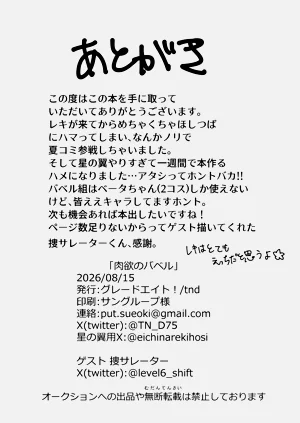 あとがき
この度はこの本を手に取って
いただいてありがとうございます。
レキが来てからめちゃくちゃほしつば
にハマってしまい、なんかノリで
夏コミ参戦しちゃいました。
そして星の翼やりすぎて一週間で本作る
ハメになりました…アタシってホントバカ!!
バベル組はベータちゃん(2コス)しか使えない
けど、皆ええキャラしてますホント。
次も機会あれば本出したいですね!
ページ数足りないからってゲスト描いてくれた
捜サレーターくん、感謝。
レキはとても
えっちだと思うよ☆
「肉欲のバベル」
2026/08/15
発行:グレードエイト!/tnd
印刷:サングループ様
連絡:put.sueoki@gmail.com
X(twitter):@TN_D75
星の翼用X:@eichinarekihosi
ゲスト 捜サレーター
X(twitter):@level6_shift
むだんてんさい
オークションへの出品や無断転載は禁止しております